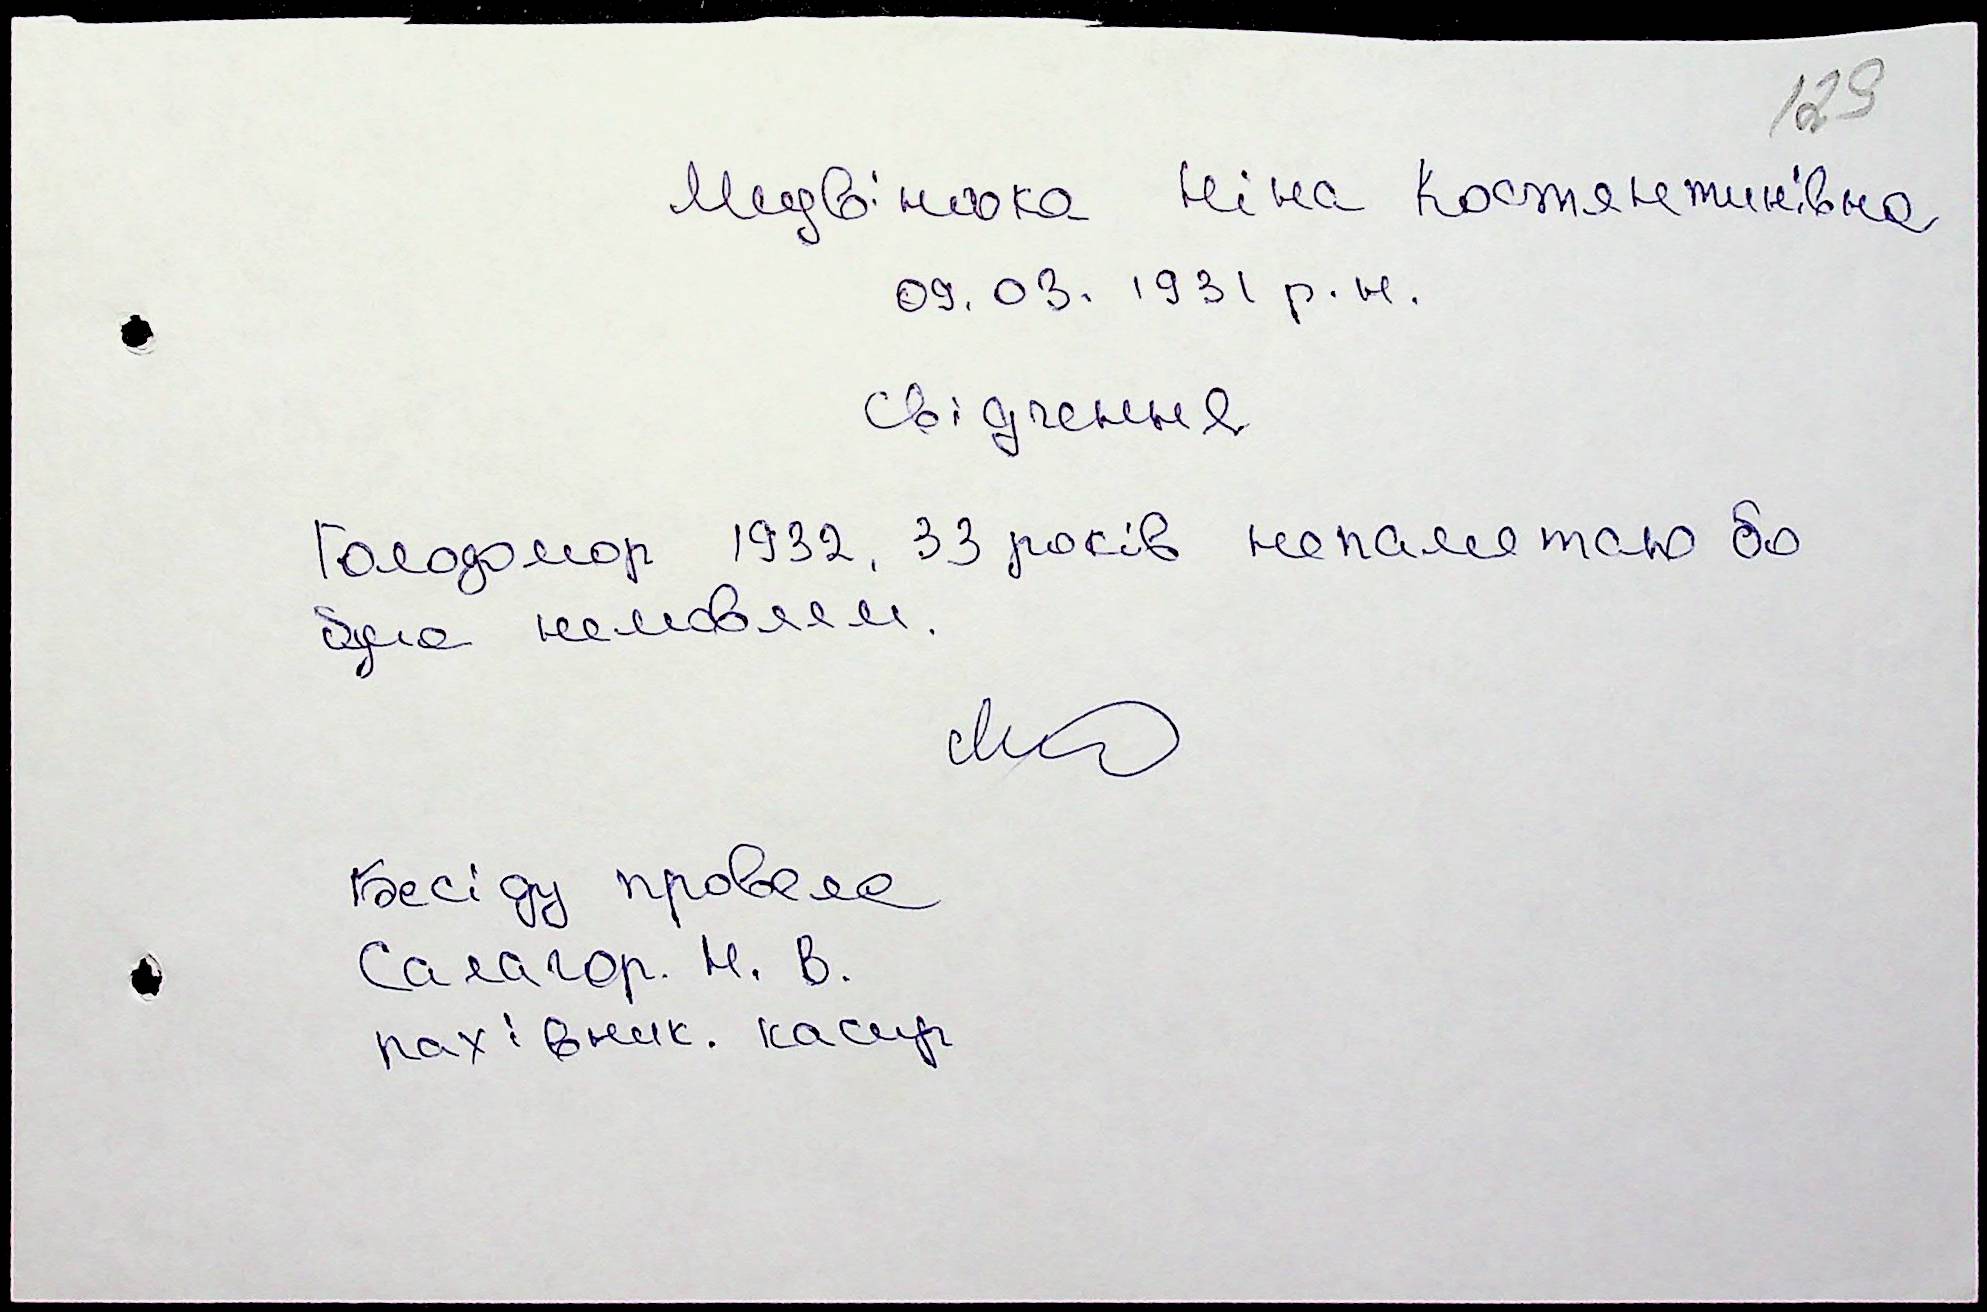 129
Медвінська Ніна Костянтинівна
09.03.1931 р.н.
Свідчення
Голодомор 1932, 33 років непаметаю бо
була немовлям.
Бесіду провела
Салагор. Н. В.
рахівник. касир